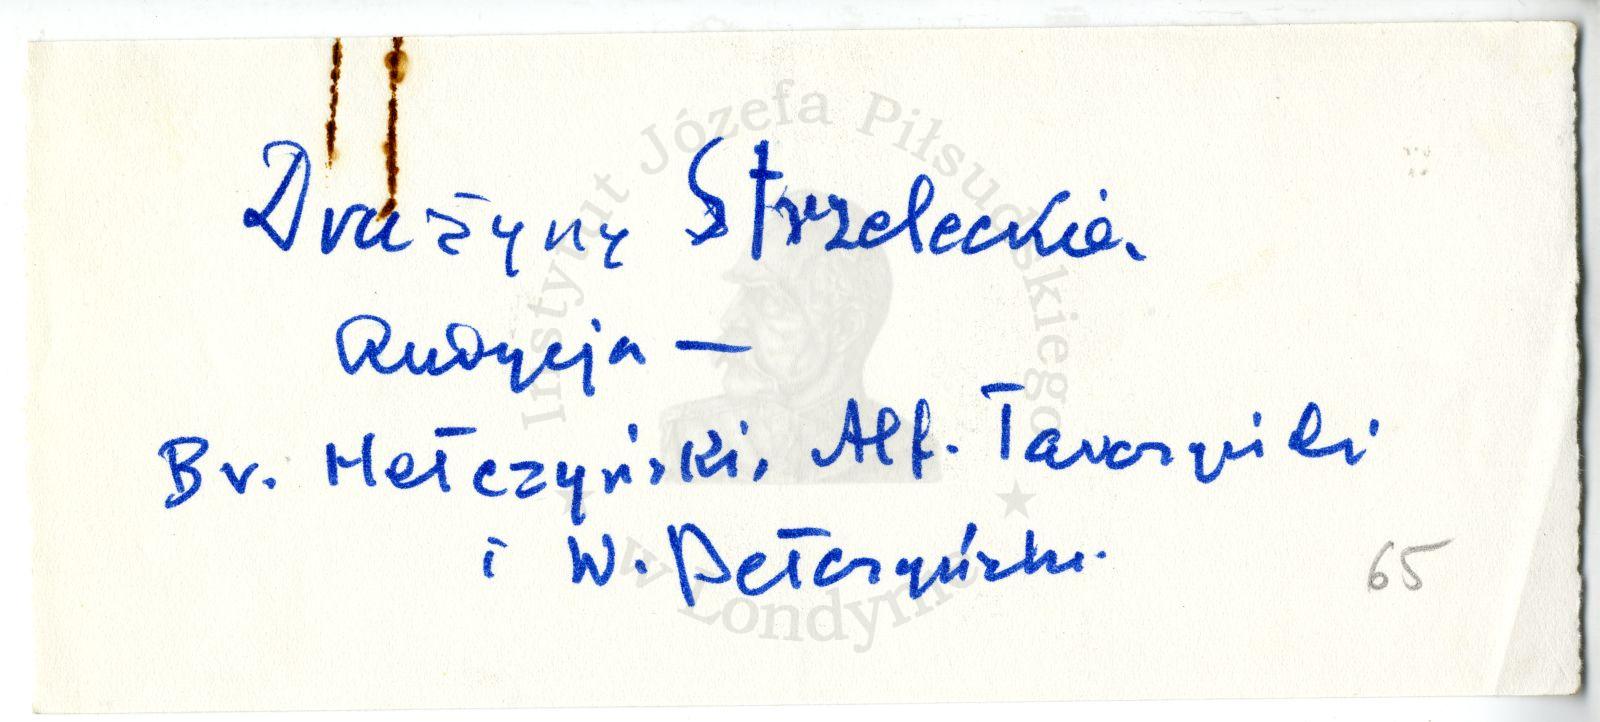 Drużyny Strzeleckie.
Audycja —
Br. Hełczyński, Alf.
i W. Pełczyński.
65
Instytut Józefa Piłsudskiego
w Londynie